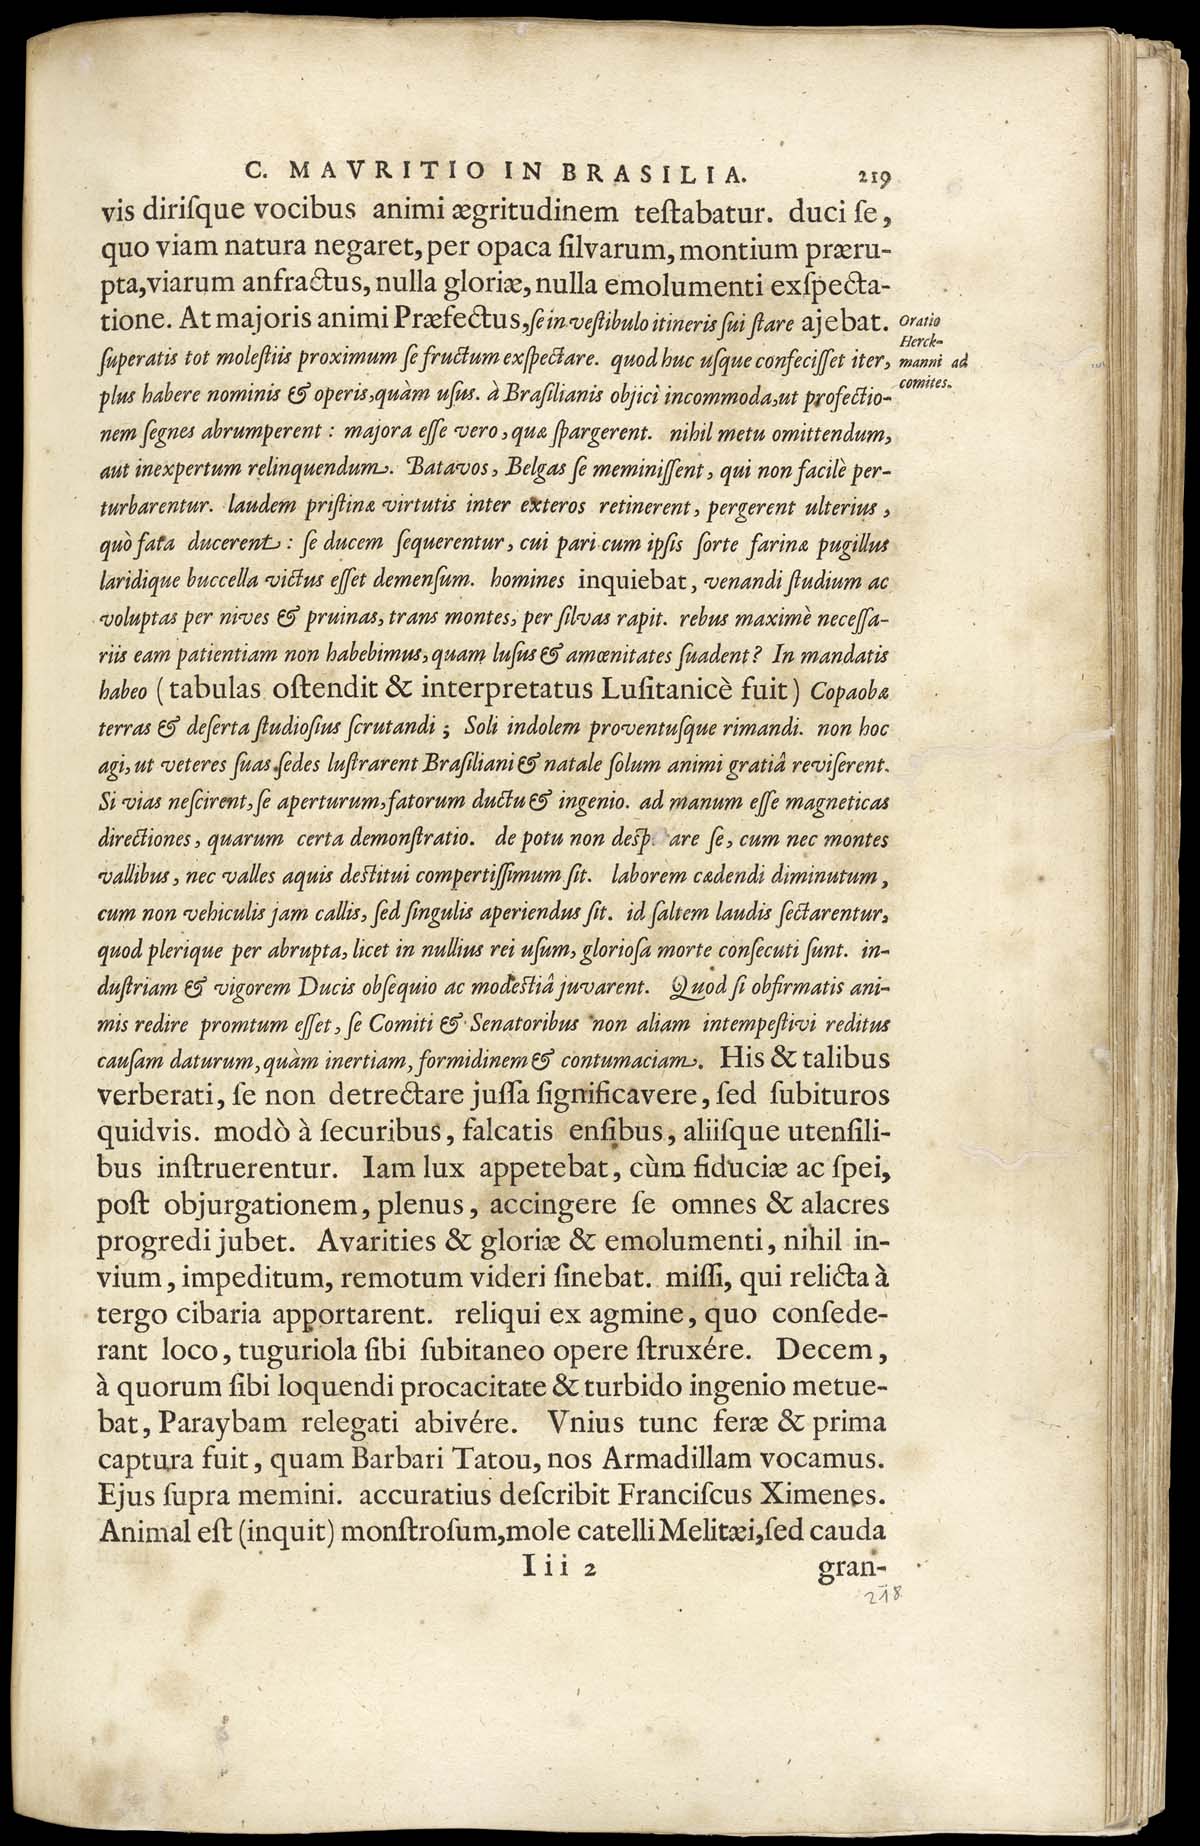 C. MAVRITIO IN BRASILIA. 219
vis diriſque vocibus animi ægritudinem teſtabatur. duci ſe,
quo viam natura negaret, per opaca ſilvarum, montium præru-
pta, viarum anfractus, nulla gloriæ, nulla emolumenti exſpecta-
tione. At majoris animi Præfectus, ſe in veſtibulo itineris ſui ſtare ajebat.
Oratio
Herck-
manni ad
comites.
ſuperatis tot moleſtiis proximum ſe fructum exſpectare. quod huc uſque confeciſſet iter,
plus habere nominis & operis, quàm uſus. à Braſilianis objici incommoda, ut profectio-
nem ſegnes abrumperent: majora eſſe vero, quæ ſpargerent. nihil metu omittendum,
aut inexpertum relinquendum. Batavos, Belgas ſe meminiſſent, qui non facilè per-
turbarentur. laudem priſtinæ virtutis inter exteros retinerent, pergerent ulterius,
quò fata ducerent: ſe ducem ſequerentur, cui pari cum ipſis ſorte farinæ pugillus
laridique buccella victus eſſet demenſum. homines inquiebat, venandi ſtudium ac
voluptas per nives & pruinas, trans montes, per ſilvas rapit. rebus maximè neceſſa-
riis eam patientiam non habebimus, quam luſus & amœnitates ſuadent? In mandatis
habeo (tabulas oſtendit & interpretatus Luſitanicè fuit) Copaobæ
terras & deſerta ſtudioſius ſcrutandi; Soli indolem proventuſque rimandi. non hoc
agi, ut veteres ſuas ſedes luſtrarent Braſiliani & natale ſolum animi gratiâ reviſerent.
Si vias neſcirent, ſe aperturum, fatorum ductu & ingenio. ad manum eſſe magneticas
directiones, quarum certa demonſtratio. de potu non deſp are ſe, cum nec montes
vallibus, nec valles aquis deſtitui compertiſſimum ſit. laborem cædendi diminutum,
cum non vehiculis jam callis, ſed ſingulis aperiendus ſit. id ſaltem laudis ſectarentur,
quod plerique per abrupta, licet in nullius rei uſum, glorioſa morte conſecuti ſunt. in-
duſtriam & vigorem Ducis obſequio ac modeſtiâ juvarent. Quod ſi obfirmatis ani-
mis redire promtum eſſet, ſe Comiti & Senatoribus non aliam intempeſtivi reditus
cauſam daturum, quàm inertiam, formidinem & contumaciam. His & talibus
verberati, ſe non detrectare juſſa ſignificavere, ſed ſubituros
quidvis. modò à ſecuribus, falcatis enſibus, aliiſque utenſili-
bus inſtruerentur. Iam lux appetebat, cùm fiduciæ ac ſpei,
poſt objurgationem, plenus, accingere ſe omnes & alacres
progredi jubet. Avarities & gloriæ & emolumenti, nihil in-
vium, impeditum, remotum videri ſinebat. miſſi, qui relicta à
tergo cibaria apportarent. reliqui ex agmine, quo conſede-
rant loco, tuguriola ſibi ſubitaneo opere ſtruxére. Decem,
à quorum ſibi loquendi procacitate & turbido ingenio metue-
bat, Paraybam relegati abivére. Vnius tunc feræ & prima
captura fuit, quam Barbari Tatou, nos Armadillam vocamus.
Ejus ſupra memini. accuratius deſcribit Franciſcus Ximenes.
Animal eſt (inquit) monſtroſum, mole catelli Melitæi, ſed cauda
Iii 2 gran-
218